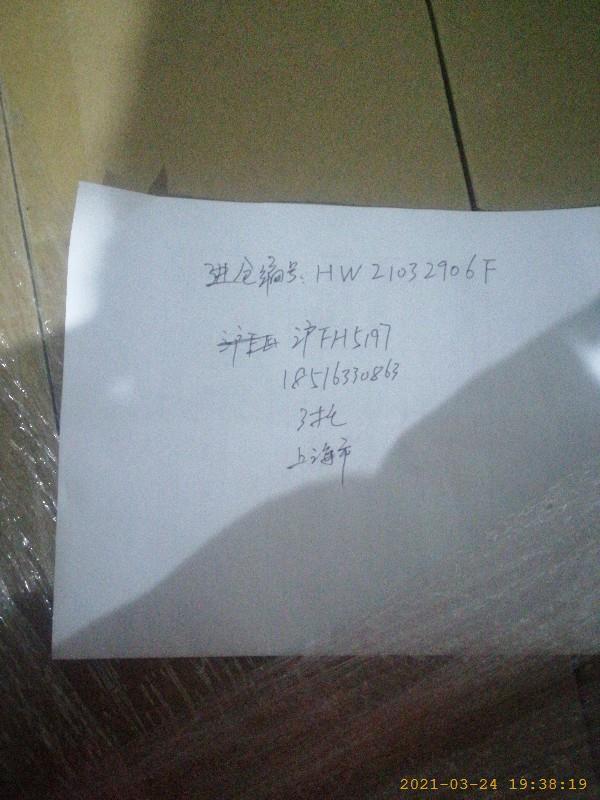 进仓编号: HW21032906F
沪FH5197
18516330863
3托
上海市
2021-03-24 19:38:19